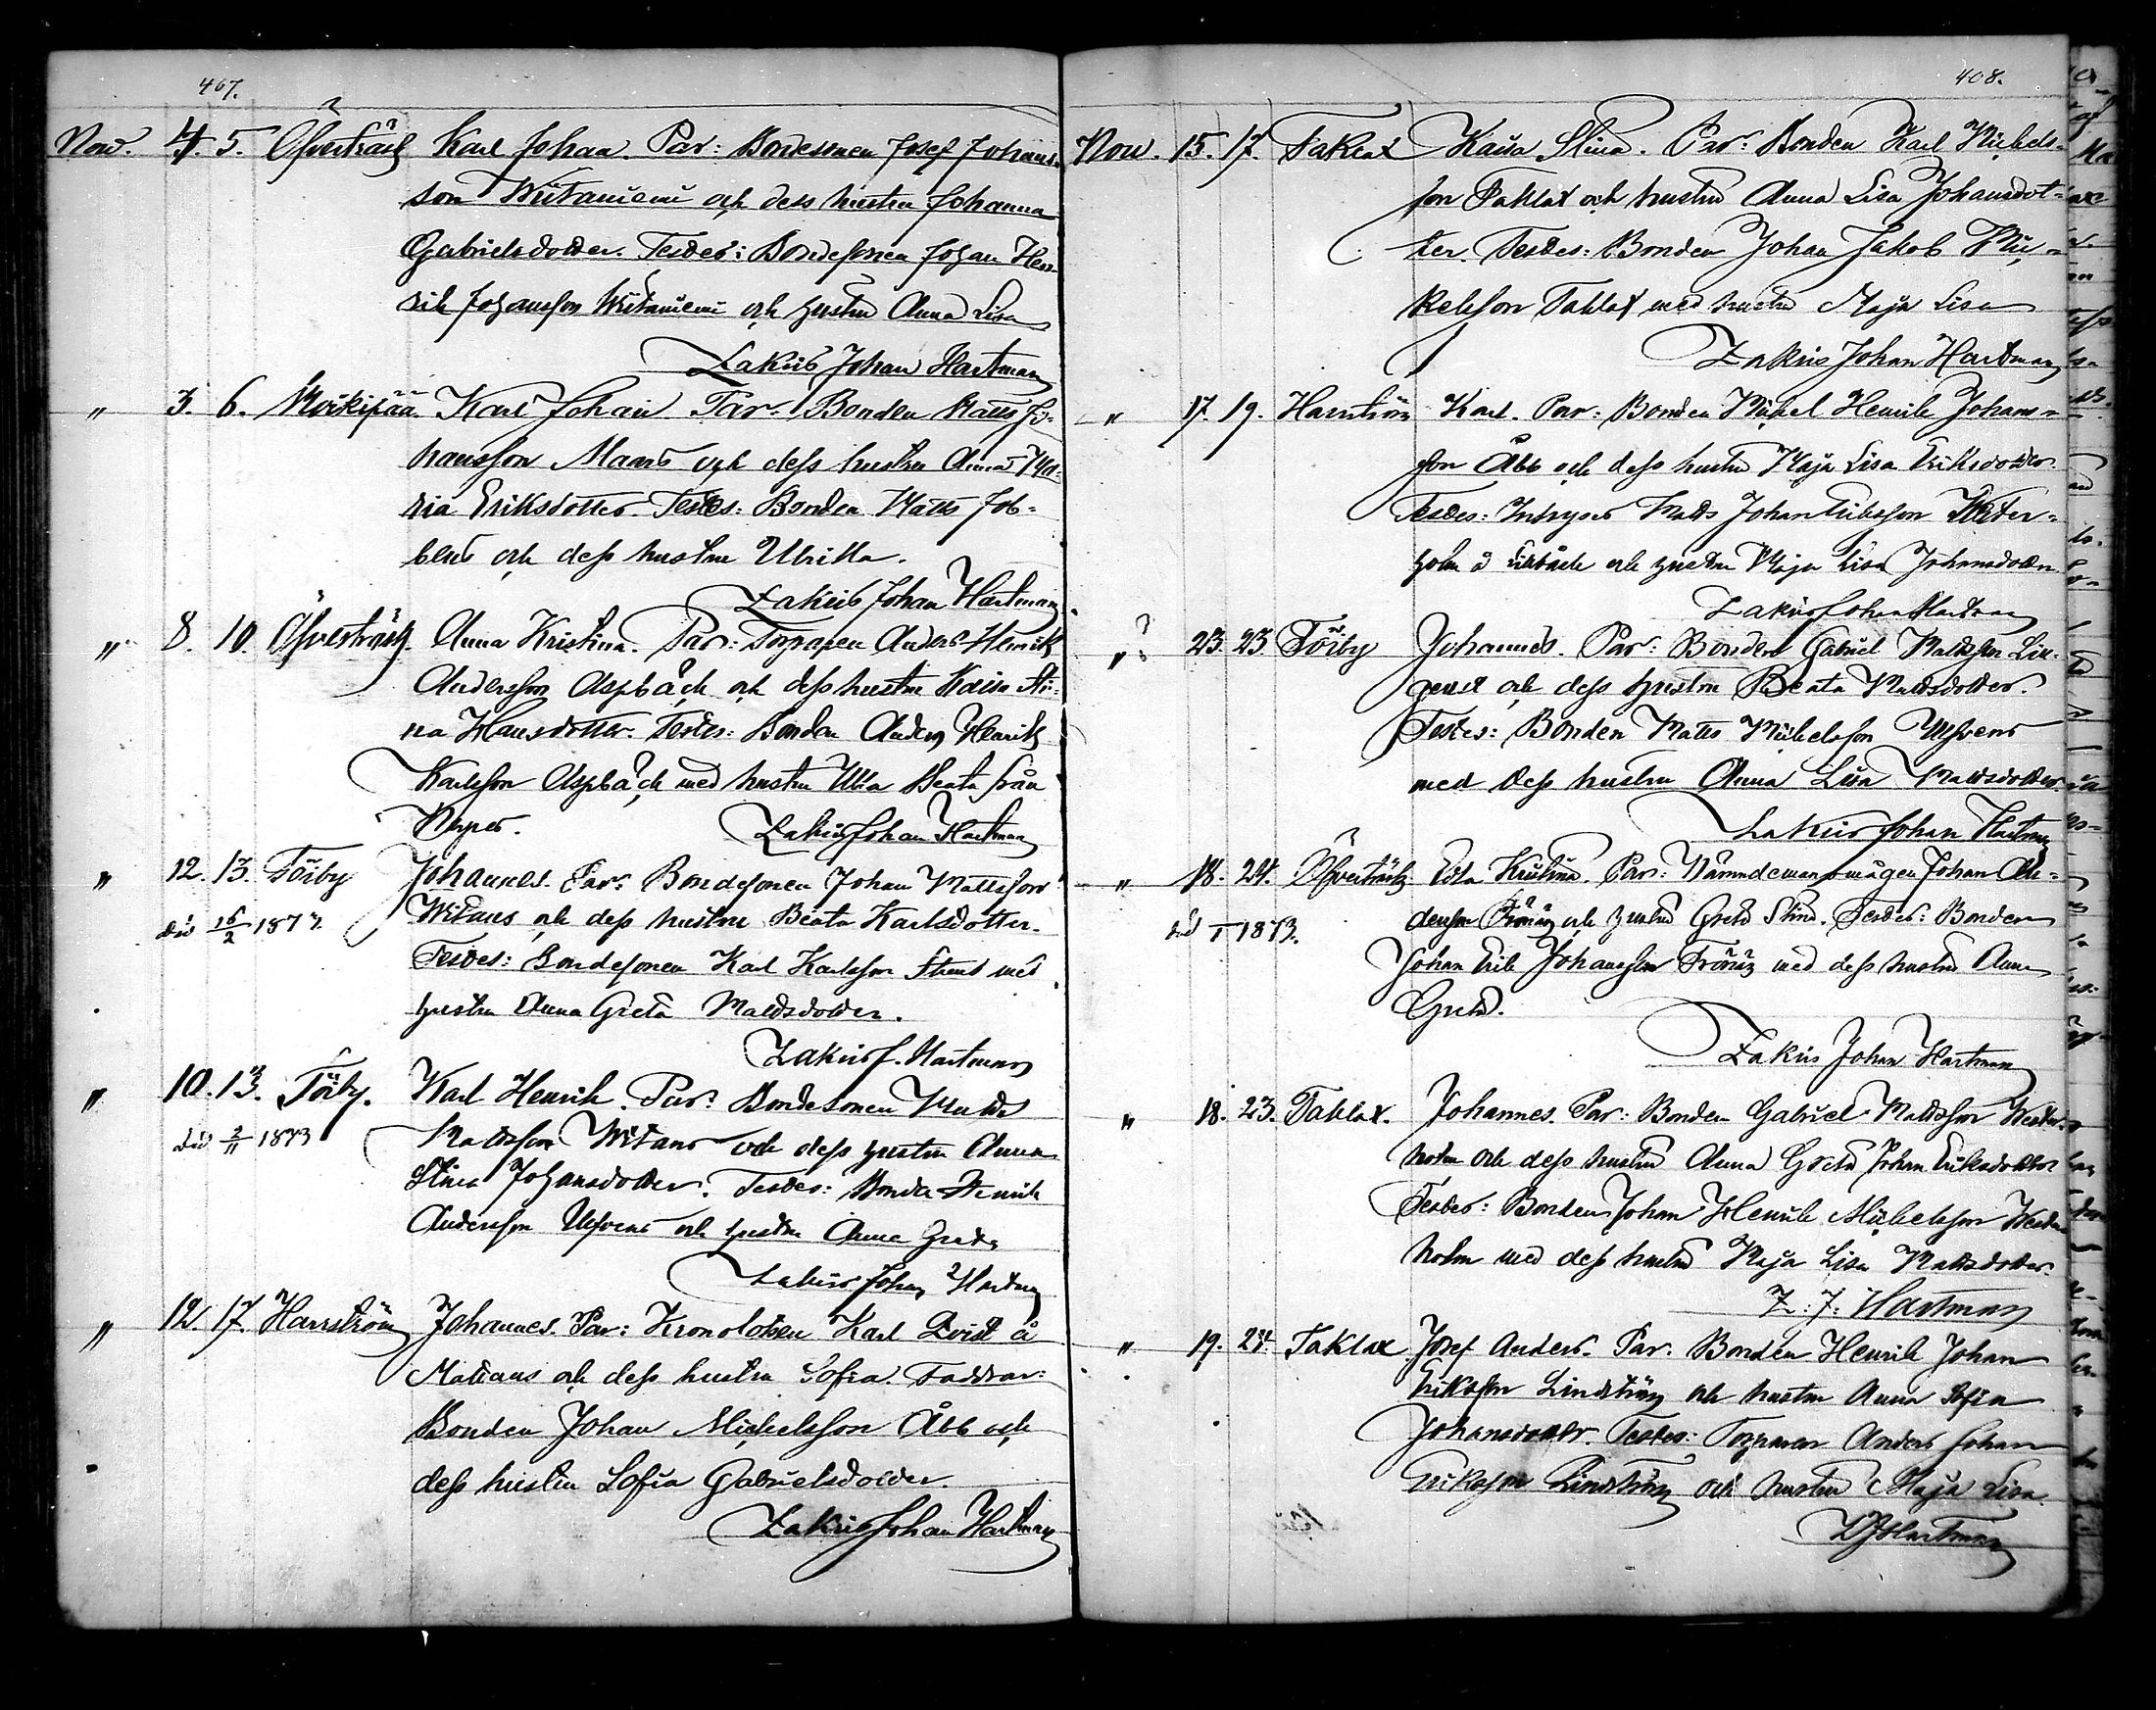 407.
Nov. 4. 5. Öfverträsk Karl Johan. Par: Bondesonen Josef Johans-
son Wiitaniemi och dess hustru Johanna
Gabrielsdotter. Testes: Bondesonen Johan Hen-
rik Johansson Wiitaniemi och hustru Anna Lisa
Zakris Johan Hartman
" 3. 6. Moikipää Karl Johan Par: Bonden Matts Jo-
hansson Maars och dess hustru Anna Ma-
ria Eriksdotter. Testes: Bonden Matts
och dess hustru Ulrika.
Zakris Johan Hartman
" 8. 10. Öfverträsk. Anna Kristina. Par: Torparen Anders Henrik
Andersson Aspbäck och dess hustru Kaisa Sti-
na Hansdotter. Testes: Bonden Anders Henrik
Karlsson Aspbäck med hustru Ulla Beata från
Zakris Johan Hartman
" 12. 13. Töiby Johannes. Par: Bondesonen Johan Mattsson
död 1873 Witans och dess hustru Beata Karlsdotter.
Testes: Bondesonen Karl Karlsson med
hustru Anna Greta Mattsdotter.
Zakris J. Hartman
" 10. 13. Töiby. Karl Henrik. Par: Bondesonen Matts
död 2/11 1873 Mattsson Witans och dess hustru Anna
Stina Johansdotter. Testes: Bonden Henrik
Andersson och hustru Anna Greta
Zakris Johan Hartman
" 12. 17. Harrström Johannes. Par: Kronolotsen Karl Qvist å
och dess hustru Sofia. Faddrar:
Bonden Johan Michelsson Åbb och
dess hustru Sofia Gabrielsdotter.
Zakris Johan Hartman
408.
Nov. 15. 17. Taklax Kaisa Stina. Par: Bonden Karl Michels-
son Taklax och hustru Anna Lisa Johansdot-
ter. Testes: Bonden Johan Jakob Mi-
kelsson Taklax med hustru Maja Lisa
Zakris Johan Hartman
" 17. 19. Harrström Karl. Par: Bonden Michel Henrik Johans-
son Åbb och dess hustru Maja Lisa Eriksdotter.
Testes: Inhyses Matts Johan Eriksson Wester-
holm å och hustru Maja Lisa Johansdotter.
Zakris Johan Hartman
" 23. 25. Töiby Johannes. Par: Bonden Gabriel Mattsson Lill-
och dess hustru Beata Mattsdotter.
Testes: Bonden Matts Michelsson
med dess hustru Anna Lisa Mattsdotter.
Zakris Johan Hartman
" 18. 24. Öfverträsk Edla Kristina. Par: Nämndemansmågen Johan An-
död 1873. dersson Fröniz och hustru Greta Stina. Testes: Bonden
Johan Erik Johansson Fröniz med dess hustru Anna
Greta.
Zakris Johan Hartman
" 18. 23. Taklax. Johannes. Par: Bonden Gabriel Mattsson Wester-
holm och dess hustru Anna Greta Johan Eriksdotter
Testes: Bonden Johan Henrik Michelsson Wester
holm med dess hustru Maja Lisa Mattsdotter.
Z: J: Hartman
" 19. 24. Taklax Josef Anders. Par: Bonden Henrik Johan
Eriksson Lindström och hustru Anna Sofia
Johansdotter. Testes: Torparen Anders Johan
Eriksson Lindström och hustru Maja Lisa.
ZJHartman